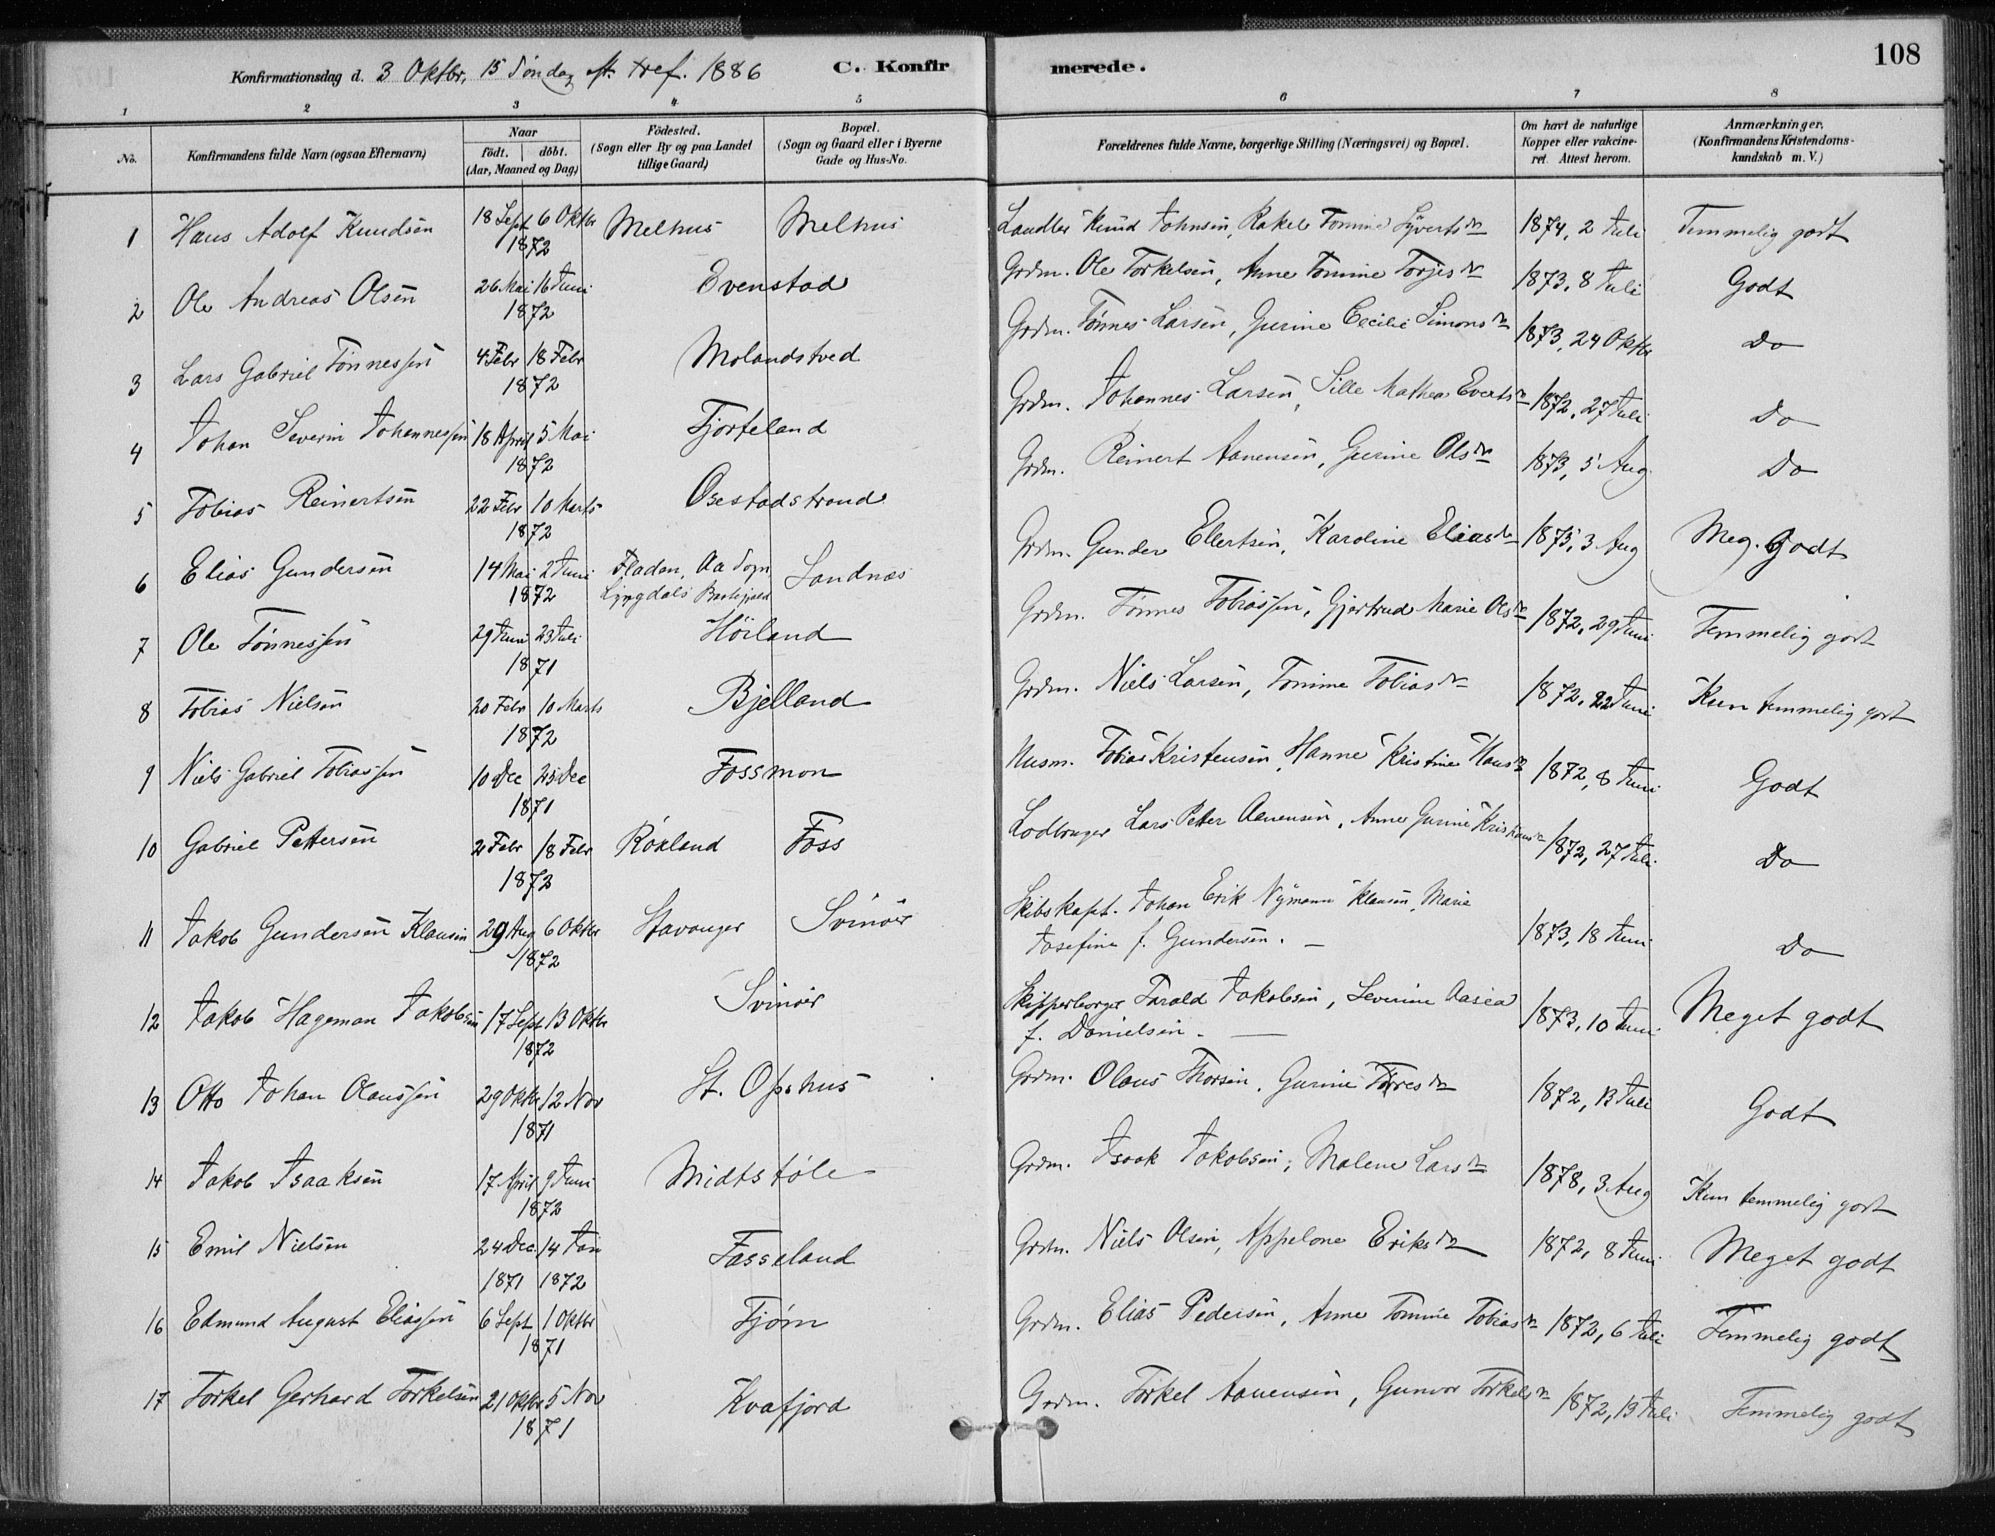 108
Konfirmationsdag d. 3 Oktbr, 15 Søndag eft. tref. 1886 C. Konfirmerede.
1 2 3 4 5 6 7 8
No. Konfirmandens fulde Navn (ogsaa Efternavn) Naar født. døbt. (Aar, Maaned og Dag) Födested. (Sogn eller By og paa Landet tillige Gaard) Bopæl. (Sogn og Gaard eller i Byerne Gade og Hus-No. Forældrenes fulde Navne, borgerlige Stilling (Næringsvei) og Bopæl. Om havt de naturlige Kopper eller vakcineret. Attest herom. Anmærkninger. (Konfirmandens Kristendomskundskab m. V.)
1 Hans Adolf Knudsen 18 Sept 6 Oktbr 1872 Melhus Melhus Knud Johnsen, Rakel Tomine Syvertsdr 1874, 2 Juli Temmelig godt
2 Ole Andreas Olsen 26 Mai 16 Juni 1872 Evenstad Grdm. Ole Torkelsen, Anne Tomine Torjesdr 1873, 8 Juli Godt
3 Lars Gabriel Tønnessen 4 Febr 18 Febr 1872 Molandstved Grdm. Tønnes Larsen, Gurine Cecilie Simonsdr 1873, 24 Oktbr Do
4 Johan Severin Johannessen 18 April 5 Mai 1872 Fjorteland Grdm. Johannes Larsen, Sille Mathea Evertsdr 1872, 27 Juli Do
5 Tobias Reinertsen 22 Febr 10 Marts 1872 Osestadstrand Grdm. Reinert Aanensen, Gurine Olsdr 1873, 5 Aug. Do
6 Elias Gundersen 14 Mai 2 Juni 1872 Fladan, Aa Sogn, Lyngdals Sandnæs Grdm. Gunder Ellertsen, Karoline Eliasdr 1875, 3 Aug Meg. Godt
7 Ole Tønnessen 29 Juni 23 Juli 1871 Hörland Grdm. Tønnes Tobiassen, Gjertrud Marie Olsdr 1872, 29 Juni Temmelig godt
8 Tobias Nielsen 20 Febr 10 Marts 1872 Bjelland Grdm. Niels Larsen, Tomine Tobiasdr 1872, 22 Juni Kun temmelig godt
9 Niels Gabriel Tobiassen 10 Dec 25 Dec 1871 Fossmon Husm. Tobias Kristensen, Hanne Kristine Hansdr 1872, 8 Juni Godt
10 Gabriel Pettersen 2 Febr 18 Febr 1872 Röxland Foss Lodbruger Lars Petter Aanensen, Anne Gurine 1872, 27 Juli Do
11 Jakob Gundersen Klausen 29 Aug 6 Oktbr 1872 Stavanger Svinöer Skibskapt. Johan Erik Nymann Klausen, Marie
Josefine f. Gundersen. — 1873, 18 Juni Do
12 Jakob Hageman Jakobsen 17 Sept 13 Oktbr 1872 Svinöer Skipperborger Tarald Jakobsen, Severine Aasea
f. Danielsen. — 1873, 10 Juni Meget godt
13 Otto Johan Olaussen 29 Oktbr 12 Nov 1871 St. Ops.hus Grdm. Olaus Thorsen, Gurine Torresdr 1872, 13 Juli Godt
14 Jakob Isaaksen 17 April 9 Juni 1872 Midtstöle Grdm. Isaak Jakobsen, Malene Larsdr 1878, 3 Aug Kun temmelig godt
15 Emil Nielsen 24 Dec. 14 Jan 1871 1872 Fasseland Grdm. Niels Olsen, Appelone Eriksdr 1872, 8 Juni Meget godt
16 Edmund August Eliassen 6 Sept 1 Oktbr 1871 Tjörn Grdm. Elias Pedersen, Anne Tomine Tobiasdr 1872, 6 Juli Temmelig godt
17 Torkel Gerhard Torkelsen 21 Oktbr 5 Nov 1871 Kvafjord Grdm. Torkel Aanensen, Gunvor Torkelsdr 1872, 13 Juli Temmelig godt